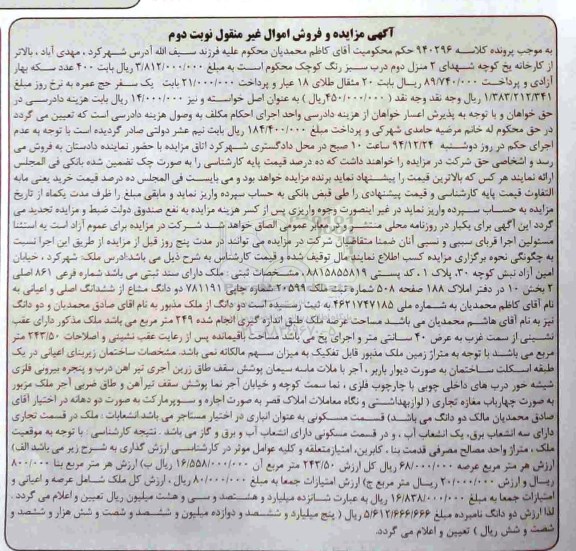 آگهی مزایده و فروش اموال غیر منقول نوبت دوم
به موجب پرونده کلاسه ۹۴۰۲۹۶ حکم محکومیت آقای کاظم محمدیان محکوم علیه فرزند سیف الله آدرس شهرکرد ، مهدی آباد ، بالاتر
از کارخانه یخ کوچه شهدای ۲ منزل دوم درب سبز رنگ کوچک محکوم است به مبلغ ۳/۸۱۲/۰۰۰/۰۰۰ ریال بابت ۴۰۰ عدد سکه بهار
آزادی و پرداخت ۸۹/۷۴۰/۰۰۰ ریال بابت ۲۰ مثقال طلای ۱۸ عیار و پرداخت ۲۱/۰۰۰/۰۰۰ بابت یک سفر حج عمره به نرخ روز مبلغ
۱/۳۸۳/۲۱۲/۳۴۱ ریال وجه نقد وجه نقد (۴۵۰/۰۰۰/۰۰۰ریال ) به عنوان اصل خواسته و نیز ۱۴/۰۰۰/۰۰۰ ریال بابت هزینه دادرسی در
حق خواهان و با توجه به پذیرش اعسار خواهان از هزینه دادرسی واحد اجرای احکام مکلف به وصول هزینه دادرسی است که تعیین می گردد
در حق محکوم له خانم مرضیه حامدی شهرکی و پرداخت مبلغ ۱۸۴/۴۰۰/۰۰۰ ریال بابت نیم عشر دولتی صادر گردیده است با توجه به عدم
اجرای حکم در روز دوشنبه ۹۴/۱۲/۲۴ ساعت ۱۰ صبح در محل دادگستری شهرکرد اتاق مزایده با حضور نماینده دادستان به فروش می
رسد و اشخاصی حق شرکت در مزایده را خواهند داشت که ده درصد قیمت پایه کارشناسی را به صورت چک تضمین شده بانکی فی المجلس
ارائه نمایند هر کس که بالاترین قیمت را پیشنهاد نماید برنده مزایده خواهد بود و می بایست فی المجلس ده درصد قیمت خرید یعنی مابه
التفاوت قیمت پایه کارشناسی و قیمت پیشنهادی را طی قبض بانکی به حساب سپرده واریز نماید و مابقی مبلغ را ظرف مدت یکماه از تاریخ
مزایده به حساب سپرده واریز نماید در غیر اینصورت وجوه واریزی پس از کسر هزینه مزایده به نفع صندوق دولت ضبط و مزایده تجدید می
گردد این آگهی برای یکبار در روزنامه محلی منتشر معابر عمومی الصاق خواهد شد شرکت در مزایده برای عموم آزاد است به استثنا
مسئولین اجرا قربای سببی و نسبی آنان ضمنا متقاضیان شرکت در مزایده می توانند در مدت پنج روز قبل از مزایده از طریق این اجرا نسبت
به چگونگی نحوه برگزاری مزایده کسب اطلاع نمایند مال توقیف شده و قیمت کارشناس به شرح ذیل می باشد:ادرس ملک: شهرکرد ، خیابان
امین آزاد نبش کوچه ۳۰، پلاک ۱ ، کد پستی ۸۸۱۵۸۵۵۸۱۹ ، مشخصات ثبتی : ملک دارای سند ثبتی می باشد شماره فرعی ۸۶۱ اصلی
۲ بخش ۱۰ در دفتر املاک ۱۸۸ صفحه ۵۰۸ شماره ثبت ملک ۲۰۵۹۹ شماره چاپی ۷۸۱۱۹۱ دو دانگ مشاع از ششدانگ اصلی و اعیانی به
نام آقای کاظم محمدیان به شماره ملی ۴۶۲۱۷۴۷۱۸۵ به ثبت رسیده است دو دانگ از ملک مذبور به نام اقای صادق محمدیان و دو دانگ
نیز به نام آقای هاشم محمدیان می باشد مساحت عرصه ملک طبق اندازه گیری انجام شده ۲۴۹ متر مربع می باشد ملک مذکور دارای عقب
نشینی از سمت غرب به عرض ۴۰ سانتی متر و اجرای پخ می باشد مساحت باقیمانده پس از رعایت عقب نشینی و اصلاحات ۲۴۳/۵۰ متر
مربع می باشد با توجه به متراژ زمین ملک مذبور قابل تفکیک به میزان سهم مالکانه نمی باشد. مشخصات ساختمان زیربنای اعیانی در یک
طبقه اسکلت ساختمان به صورت دیوار باربر ، آجر با ملات ماسه سیمان پوشش سقف طاق زرین آجری تیر اهن درب و پنجره بیرونی فلزی
شیشه خور درب های داخلی چوبی با چارچوب فلزی ، نما سمت کوچه و خیابان آجر نما پوشش سقف تیرآهن و طاق ضربی آجر ملک مزبور
به صورت چهارباب مغازه تجاری ( لوازبهداشتی و نگاه معاملات املاک قصر به صورت اجاره و سوپرمارکت به صورت دو دهانه در اختیار آقای
صادق محمدیان مالک دو دانگ می باشد) قسمت مسکونی به عنوان انباری در اختیار مستاجر می باشد انشعابات : ملک در قسمت تجاری
دارای سه انشعاب برق، یک انشعاب آب ، و در قسمت مسکونی دارای انشعاب آب و برق و گاز می باشد . نتیجه کارشناسی: با توجه به موقعیت
ملک ، متراژ واحد مصالح مصرفی قدمت بنا ، کابرین، امتیازمتعلقه و کلیه عوامل موثر در کارشناسی ارزش گذاری به شرح زیر می باشد الف)
ارزش هر متر مربع عرصه ۶۸/۰۰۰/۰۰۰ ریال کل ارزش ۲۴۳/۵۰ متر مربع آن ۱۶/۵۵۸/۰۰۰/۰۰۰ ریال ب) ارزش هر متر مربع بنا ۸۰۰/۰۰۰
ریال و ارزش ۲۰۰/۰۰۰/۰۰۰ ریال متر مربع ج) ارزش امتیازات جمعا به مبلغ ۸۰/۰۰۰/۰۰۰ ریال ، ارزش کل ملک شامل عرصه و اعیانی و
امتیازات جمعا به مبلغ ۱۶/۸۳۸/۰۰۰/۰۰۰ ریال به عبارت شانزده میلیارد و هشتصد و سی و هشت میلیون ریال تعیین و اعلام می گردد .
لذا ارزش دو دانگ نامبرده مبلغ ۵/۶۱۲/۶۶۶/۶۶۶ ریال ( پنج میلیارد و ششصد و دوازده میلیون و ششصد و شصت و شش هزار و ششصد و
شصت و شش ریال ) تعیین و اعلام می گردد.